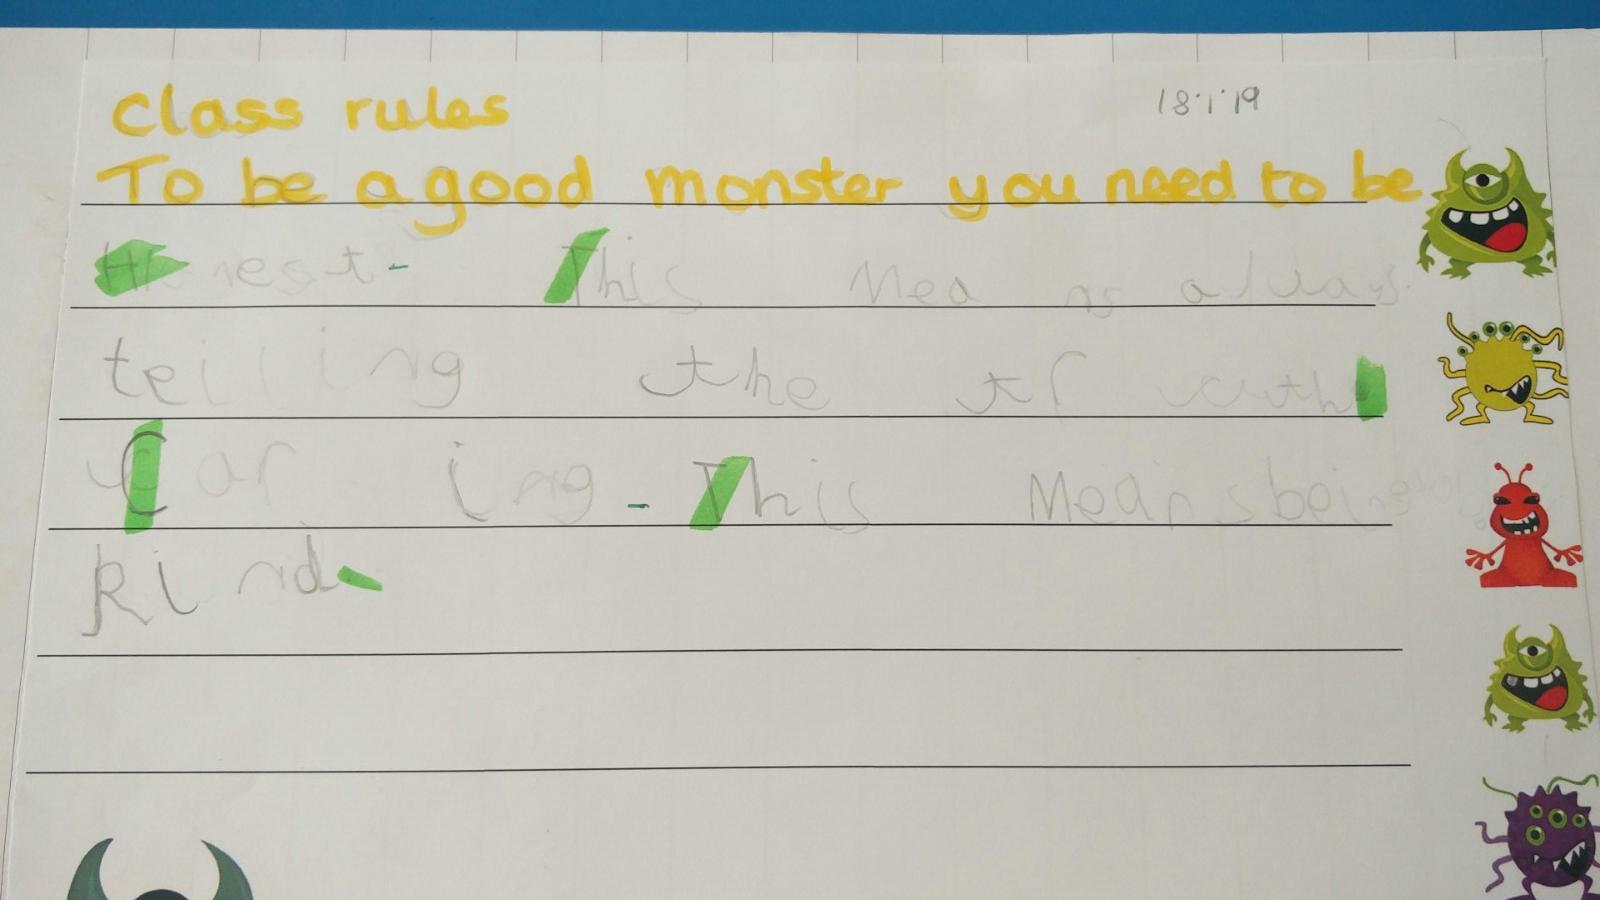 Class rules 18.1.19
To be a good monster you need to be
Honest - This means always
telling the truth
Caring - This Means being
kind.